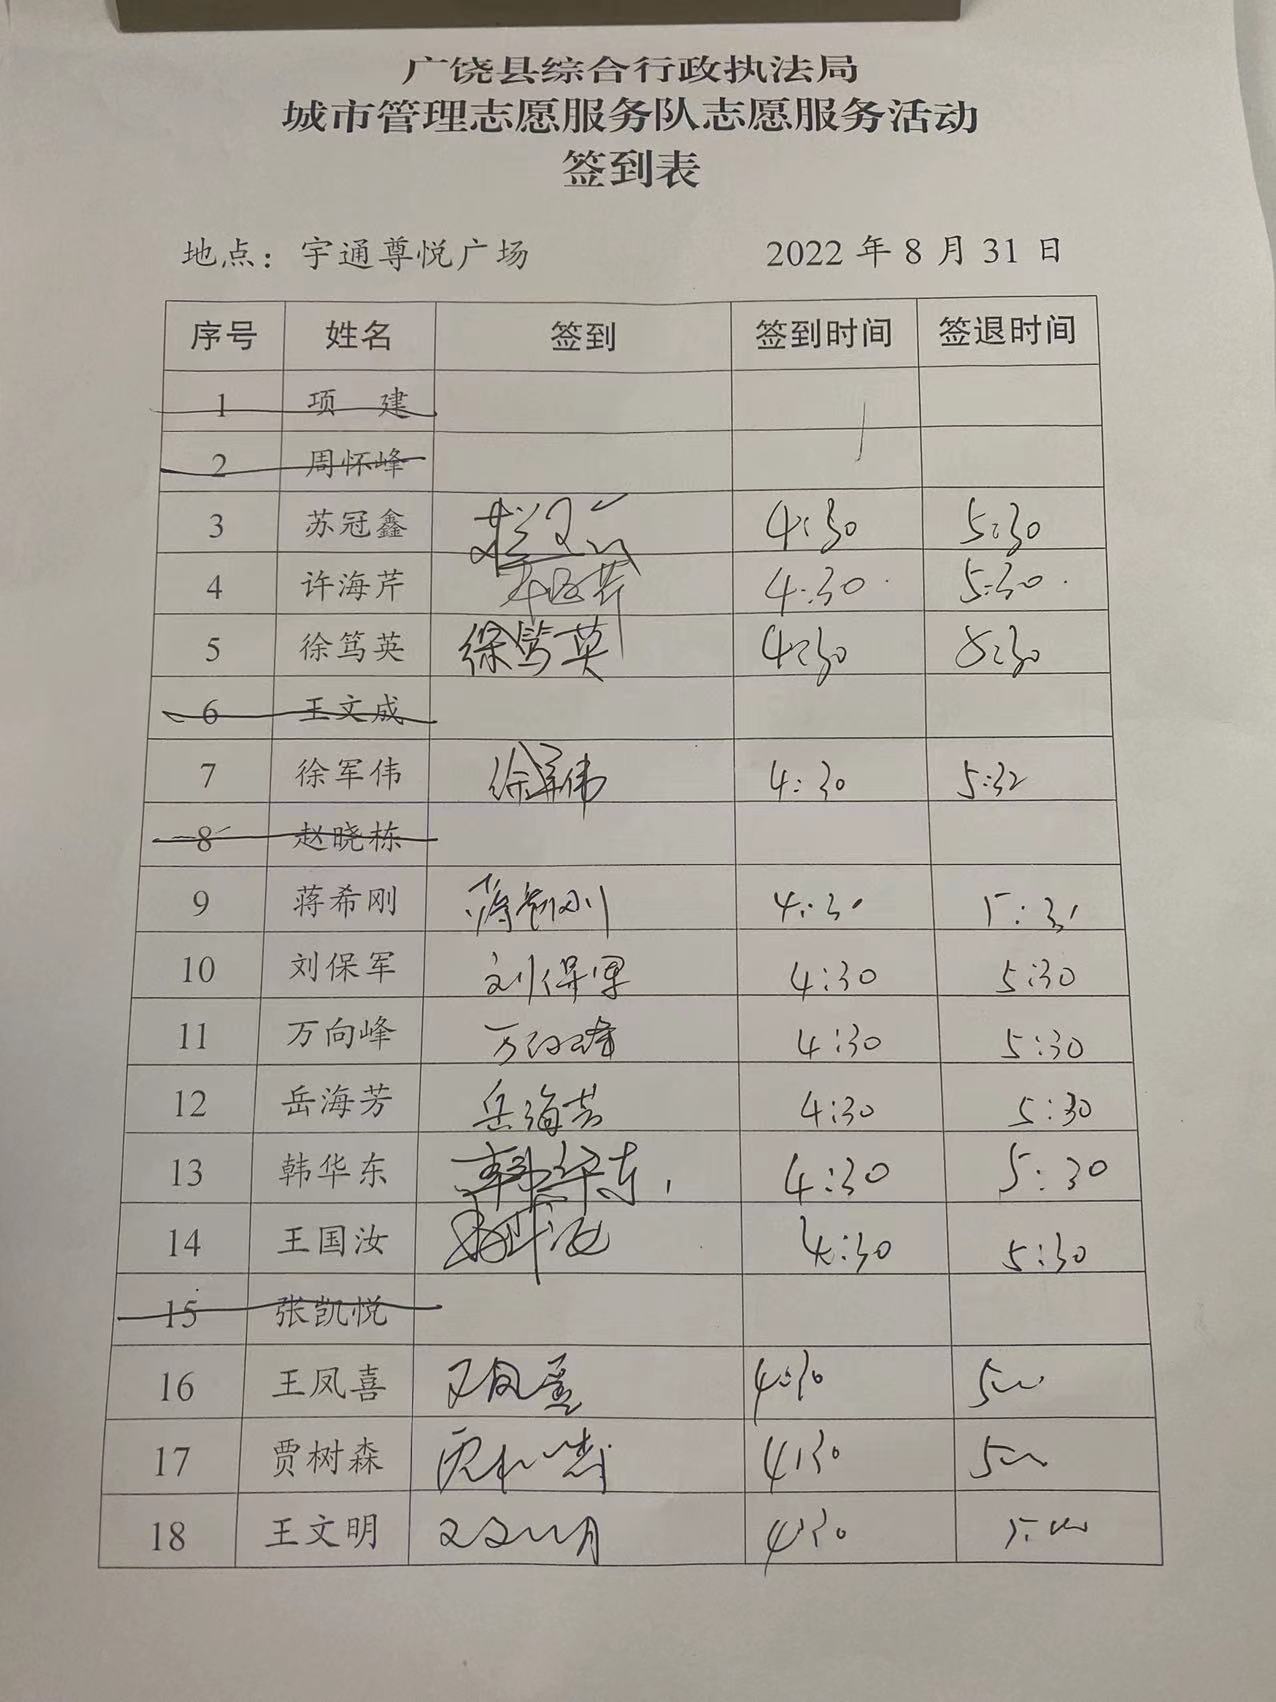 广饶县综合行政执法局
城市管理志愿服务队志愿服务活动
签到表
地点：宇通尊悦广场 2022 年 8 月 31 日
序号 姓名 签到 签到时间 签退时间
1 项 建
2 周怀峰
3 苏冠鑫 4:30 5:30
4 许海芹 4:30 5:30
5 徐笃英 徐笃英 4:30
6 王文成
7 徐军伟 徐军伟 4:30 5:32
8 赵晓栋
9 蒋希刚 蒋希刚 4:30 5:30
10 刘保军 刘保军 4:30 5:30
11 万向峰 万向峰 4:30 5:30
12 岳海芳 岳海芳 4:30 5:30
13 韩华东 韩华东 4:30 5:30
14 王国汝 4:30 5:30
15 张凯悦
16 王凤喜 王凤喜 4:30
17 贾树森 4:30
18 王文明 王文明 4:30